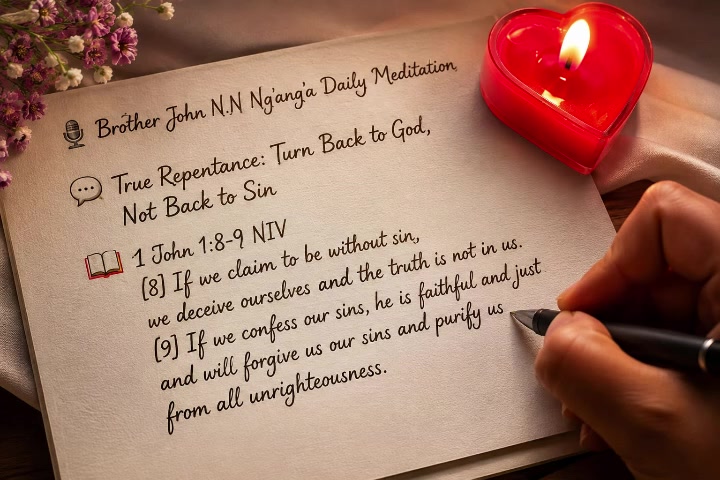 Brother John N.N Ng'ang'a Daily Meditation,
True Repentance: Turn Back to God,
Not Back to Sin
1 John 1:8-9 NIV
[8] If we claim to be without sin,
we deceive ourselves and the truth is not in us.
[9] If we confess our sins, he is faithful and just
and will forgive us our sins and purify us
from all unrighteousness.